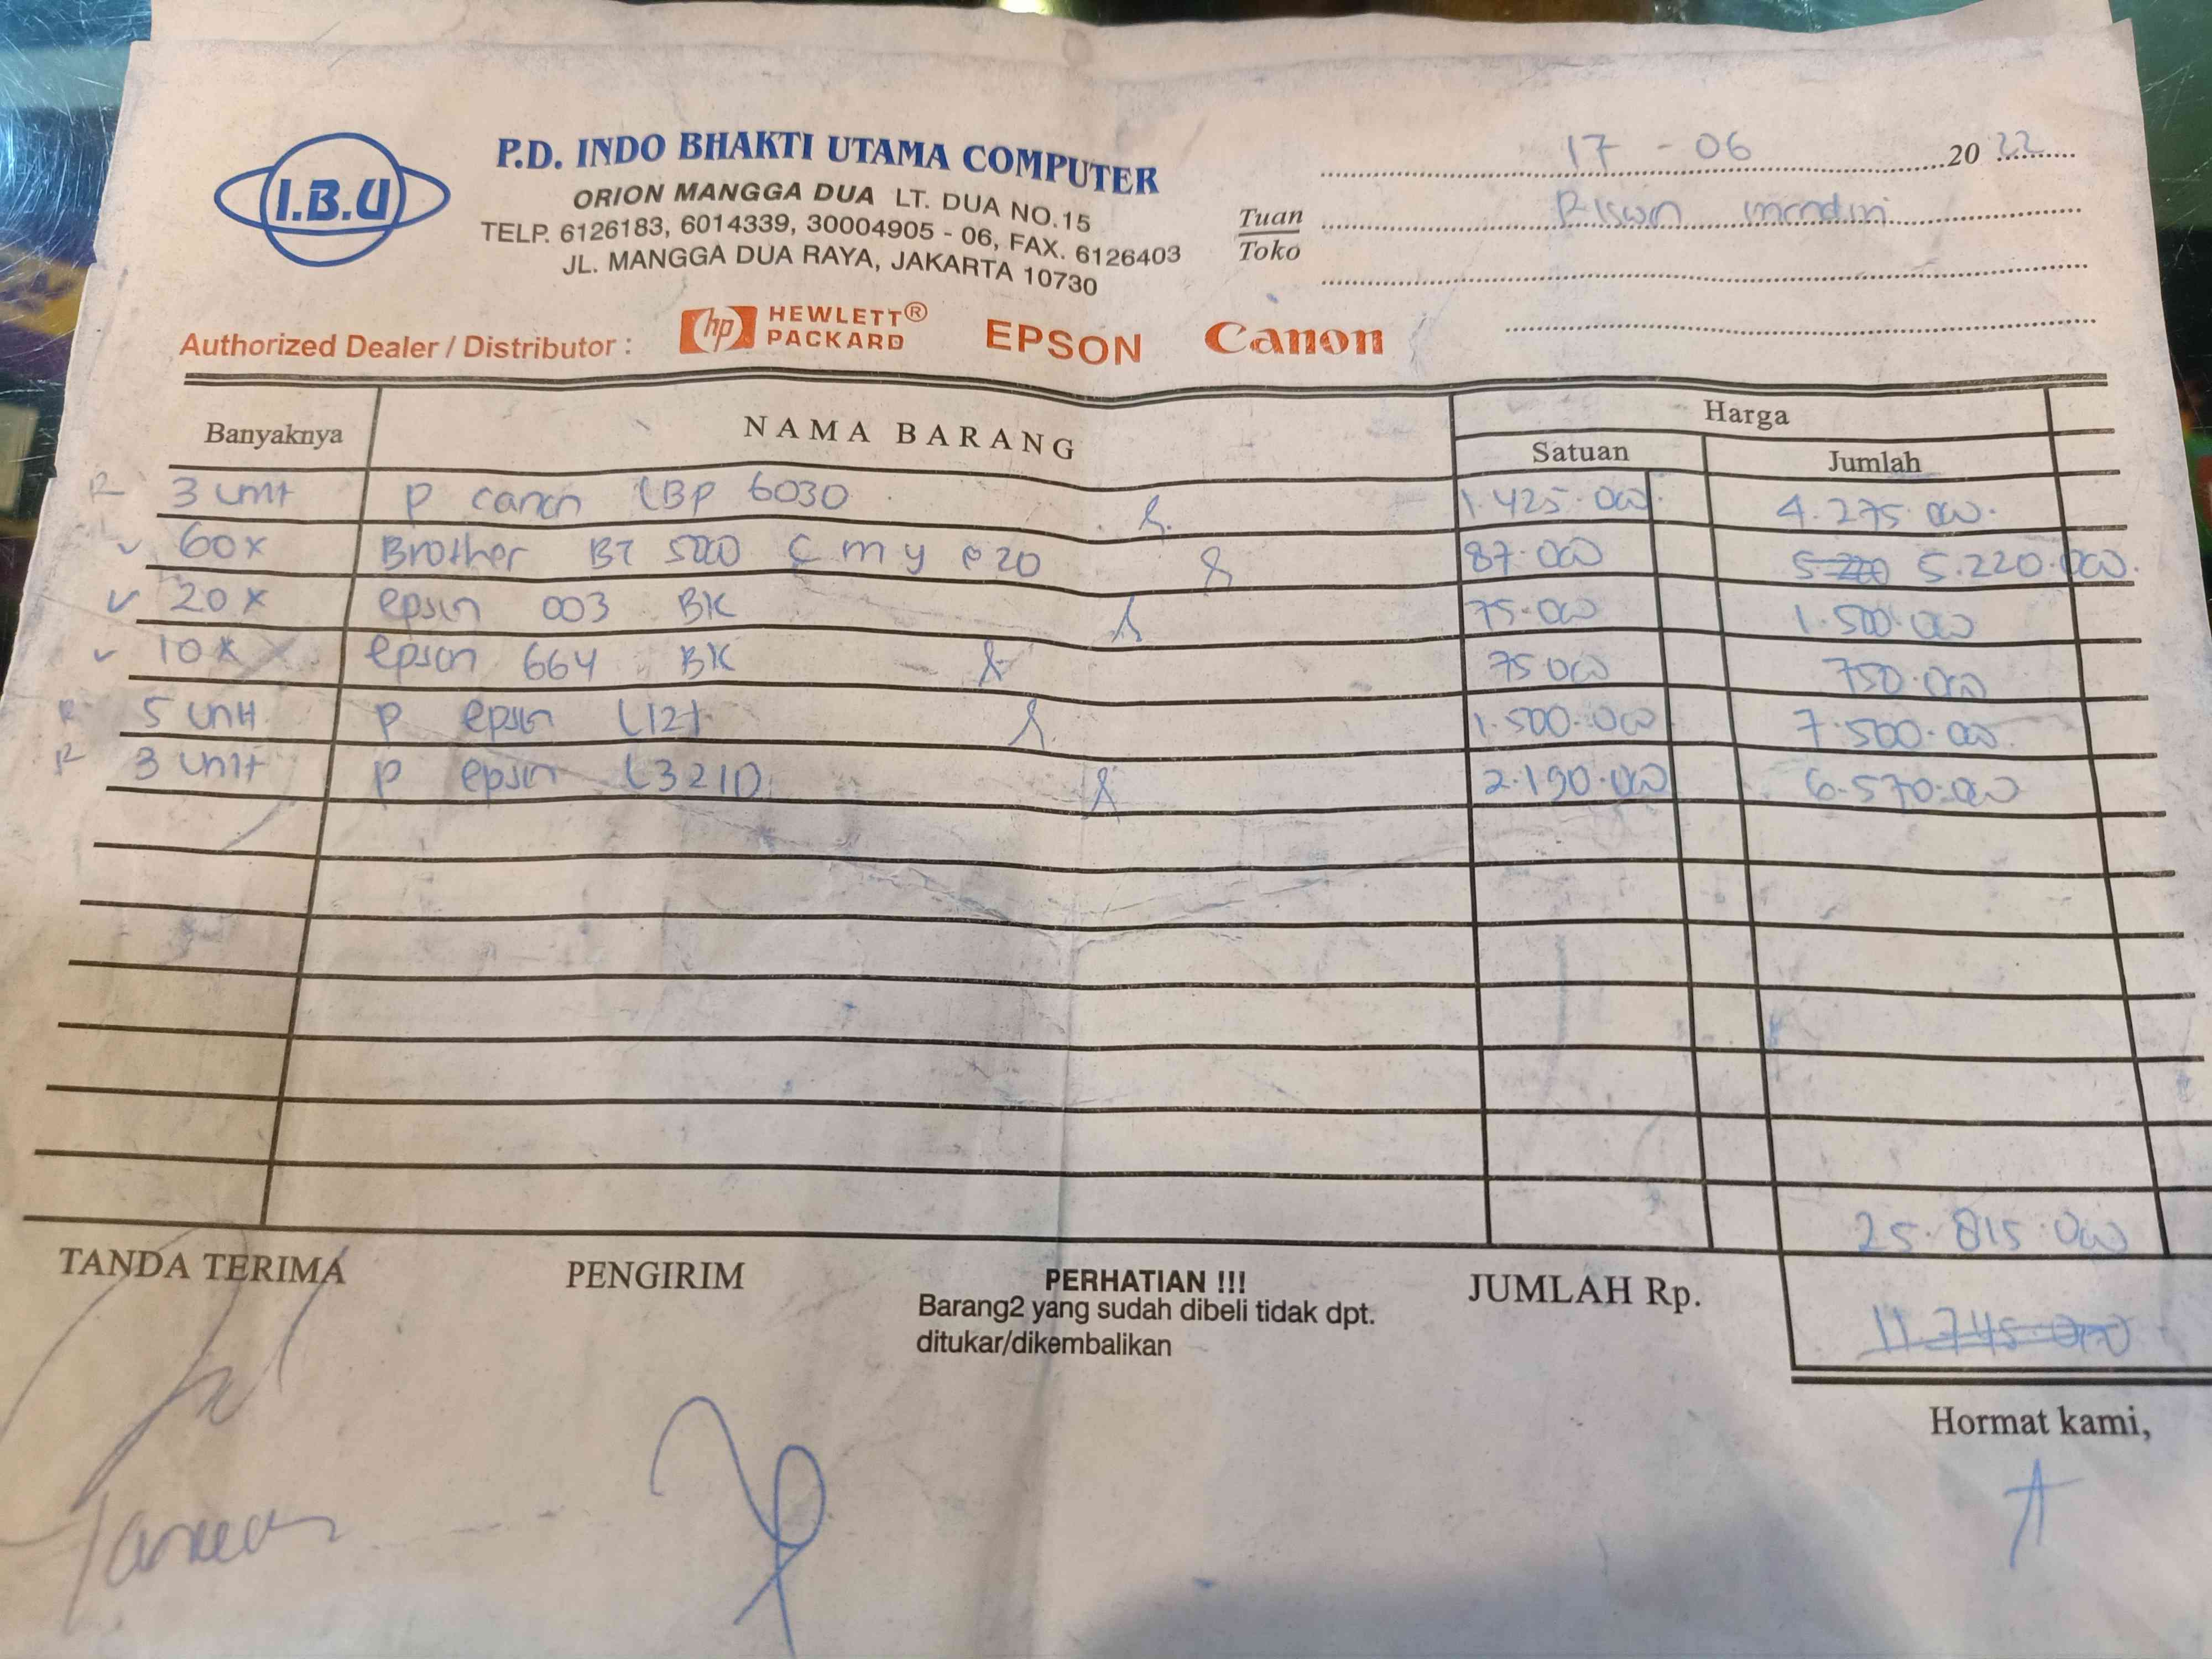 I.B.U
P.D. INDO BHAKTI UTAMA COMPUTER
ORION MANGGA DUA LT. DUA NO.15
TELP. 6126183, 6014339, 30004905 - 06, FAX. 6126403
JL. MANGGA DUA RAYA, JAKARTA 10730
17 - 06 20 22
Tuan
Toko
Authorized Dealer / Distributor : hp HEWLETT® PACKARD EPSON Canon
Banyaknya NAMA BARANG Harga
Satuan Jumlah
R 3 unit P canon LBP 6030 1.425.000 4.275.000
60x Brother BT 5000 C m y @ 20 87.000 5.220 5.220.000
20x epson 003 BK 75.000 1.500.000
10x epson 664 BK 75.000 750.000
R 5 unit P epson L121 1.500.000 7.500.000
R 3 unit P epson L3210 2.190.000 6.570.000
25.815.000
TANDA TERIMA PENGIRIM PERHATIAN !!! JUMLAH Rp.
Barang2 yang sudah dibeli tidak dpt.
ditukar/dikembalikan
11.745.000
Hormat kami,